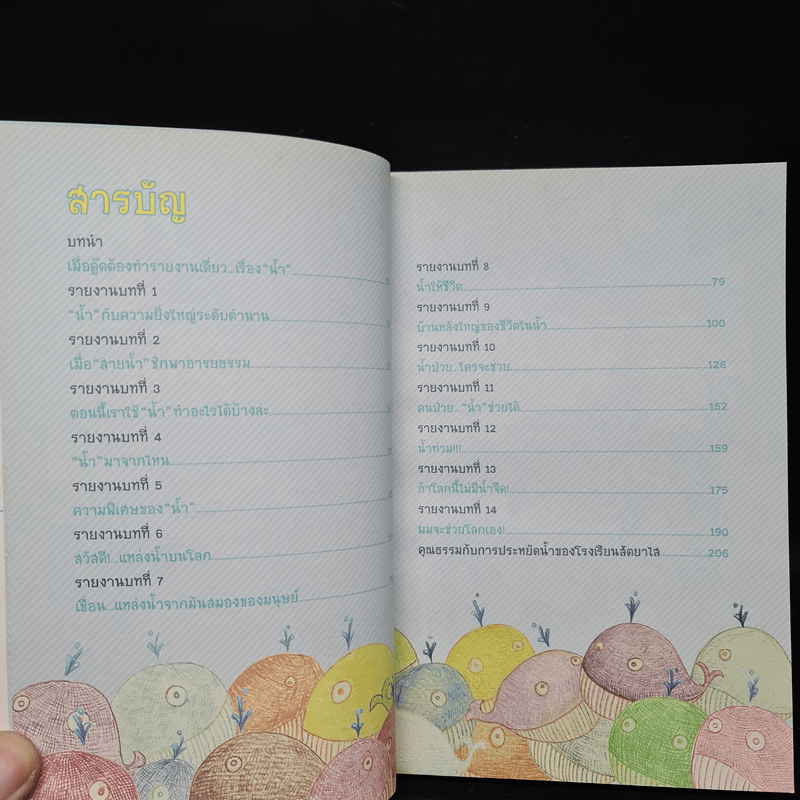 สารบัญ
บทนำ
เมื่อตู๊ดต้องทำรายงานเดี่ยว...เรื่อง "น้ำ"
รายงานบทที่ 1
"น้ำ" กับความยิ่งใหญ่ระดับตำนาน
รายงานบทที่ 2
เมื่อ "สายน้ำ" ชักพาอารยธรรม
รายงานบทที่ 3
ตอนนี้เราใช้ "น้ำ" ทำอะไรได้บ้างล่ะ
รายงานบทที่ 4
"น้ำ" มาจากไหน
รายงานบทที่ 5
ความพิเศษของ "น้ำ"
รายงานบทที่ 6
สวัสดี!...แหล่งน้ำบนโลก
รายงานบทที่ 7
เขื่อน...แหล่งน้ำจากมันสมองของมนุษย์
รายงานบทที่ 8
น้ำให้ชีวิต 79
รายงานบทที่ 9
บ้านหลังใหญ่ของชีวิตในน้ำ 100
รายงานบทที่ 10
น้ำป่วย...ใครจะช่วย 126
รายงานบทที่ 11
คนป่วย... "น้ำ" ช่วยได้ 152
รายงานบทที่ 12
น้ำท่วม!!! 159
รายงานบทที่ 13
ถ้าโลกนี้ไม่มีน้ำจืด! 175
รายงานบทที่ 14
ผมจะช่วยโลกเอง! 190
คุณธรรมกับการประหยัดน้ำของโรงเรียนสัตยาไส 206